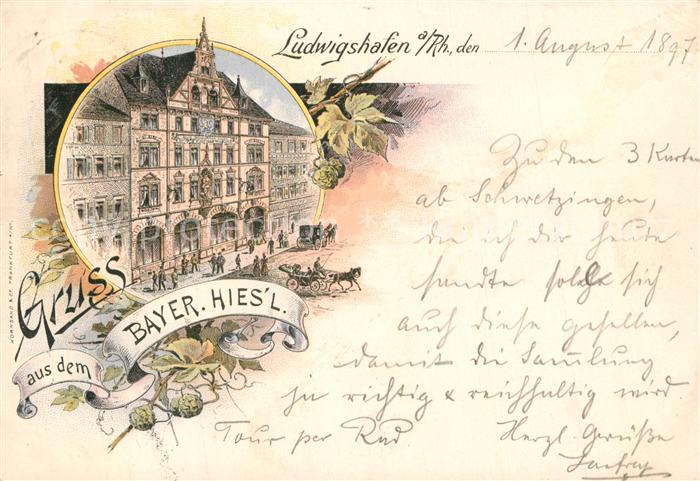 Ludwigshafen a/Rh., den 1. August 1897
Zu den 3 Karten
ab Schwetzingen,
die ich dir heute
sandte soll sich
auch diese gesellen,
damit die Sammlung
ja richtig & reichhaltig wird.
Tour per Rad
Herzl. Grüße
Gruss
aus dem
BAYER. HIES'L.